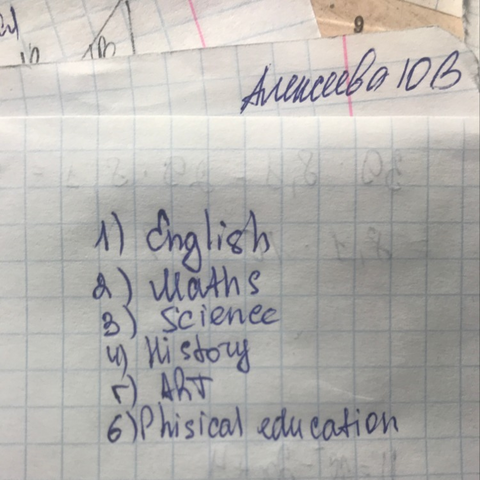 9
Алексеева ЮВ
1) English
2) Maths
3) Science
4) History
5) ART
6) Phisical education